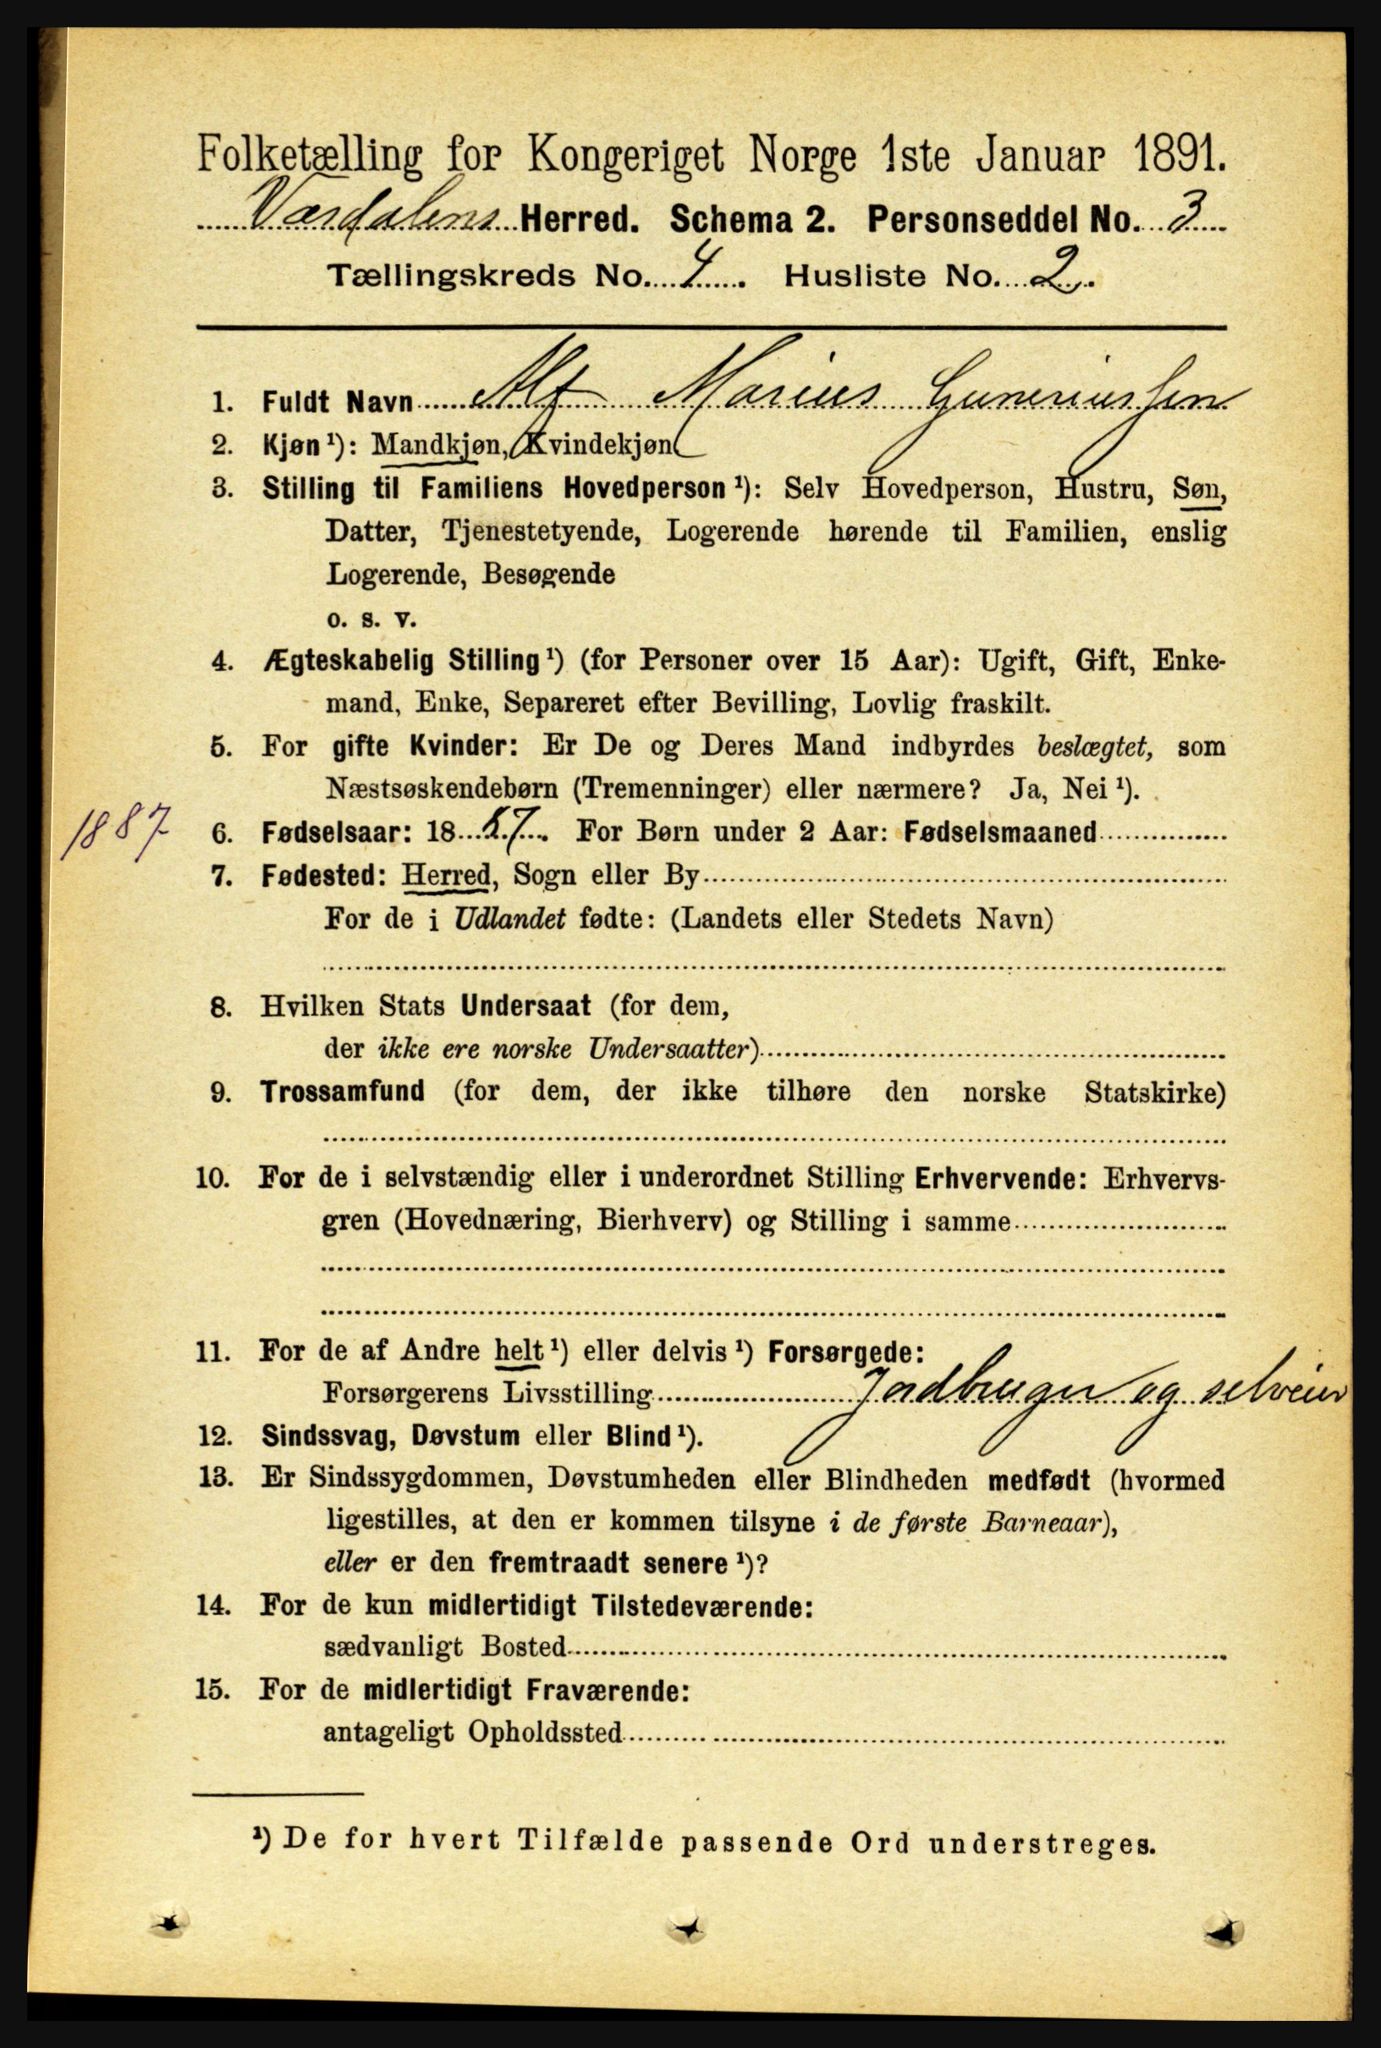 Folketælling for Kongeriget Norge 1ste Januar 1891.
Værdalens Herred. Schema 2. Personseddel No. 3
Tællingskreds No. 4. Husliste No. 2.
1. Fuldt Navn Alf Marius Guneriussen
2. Kjøn ¹): Mandkjøn, Kvindekjøn
3. Stilling til Familiens Hovedperson ¹): Selv Hovedperson, Hustru, Søn,
Datter, Tjenestetyende, Logerende hørende til Familien, enslig
Logerende, Besøgende
o. s. v.
4. Ægteskabelig Stilling ¹) (for Personer over 15 Aar): Ugift, Gift, Enke-
mand, Enke, Separeret efter Bevilling, Lovlig fraskilt.
5. For gifte Kvinder: Er De og Deres Mand indbyrdes beslægtet, som
Næstsøskendebørn (Tremenninger) eller nærmere? Ja, Nei ¹).
1887 6. Fødselsaar: 1887. For Børn under 2 Aar: Fødselsmaaned
7. Fødested: Herred, Sogn eller By
For de i Udlandet fødte: (Landets eller Stedets Navn)
8. Hvilken Stats Undersaat (for dem,
der ikke ere norske Undersaatter)
9. Trossamfund (for dem, der ikke tilhøre den norske Statskirke)
10. For de i selvstændig eller i underordnet Stilling Erhvervende: Erhvervs-
gren (Hovednæring, Bierhverv) og Stilling i samme
11. For de af Andre helt ¹) eller delvis ¹) Forsørgede:
Forsørgerens Livsstilling Jordbruger og selveier
12. Sindssvag, Døvstum eller Blind ¹).
13. Er Sindssygdommen, Døvstumheden eller Blindheden medfødt (hvormed
ligestilles, at den er kommen tilsyne i de første Barneaar),
eller er den fremtraadt senere ¹)?
14. For de kun midlertidigt Tilstedeværende:
sædvanligt Bosted
15. For de midlertidigt Fraværende:
antageligt Opholdssted
¹) De for hvert Tilfælde passende Ord understreges.